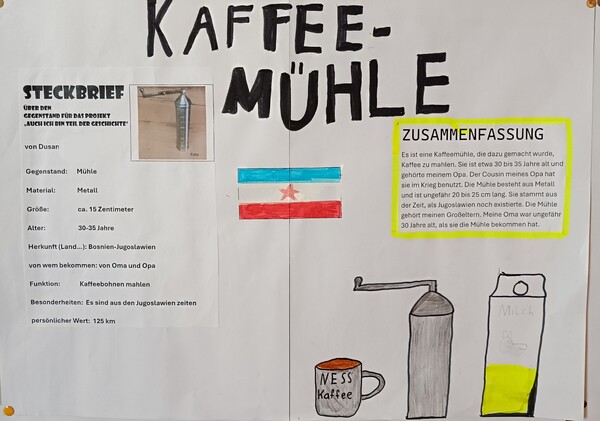 KAFFEE-
MÜHLE
STECKBRIEF
ÜBER DEN
GEGENSTAND FÜR DAS PROJEKT
„AUCH ICH BIN TEIL DER GESCHICHTE"
von Dusan
Gegenstand: Mühle
Material: Metall
Größe: ca. 15 Zentimeter
Alter: 30-35 Jahre
Herkunft (Land...): Bosnien-Jugoslawien
von wem bekommen: von Oma und Opa
Funktion: Kaffeebohnen mahlen
Besonderheiten: Es sind aus den Jugoslawien zeiten
persönlicher Wert: 125 km
ZUSAMMENFASSUNG
Es ist eine Kaffeemühle, die dazu gemacht wurde,
Kaffee zu mahlen. Sie ist etwa 30 bis 35 Jahre alt und
gehörte meinem Opa. Der Cousin meines Opa hat
sie im Krieg benutzt. Die Mühle besteht aus Metall
und ist ungefähr 20 bis 25 cm lang. Sie stammt aus
der Zeit, als Jugoslawien noch existierte. Die Mühle
gehört meinen Großeltern. Meine Oma war ungefähr
30 Jahre alt, als sie die Mühle bekommen hat.
NESS
Kaffee
Milch